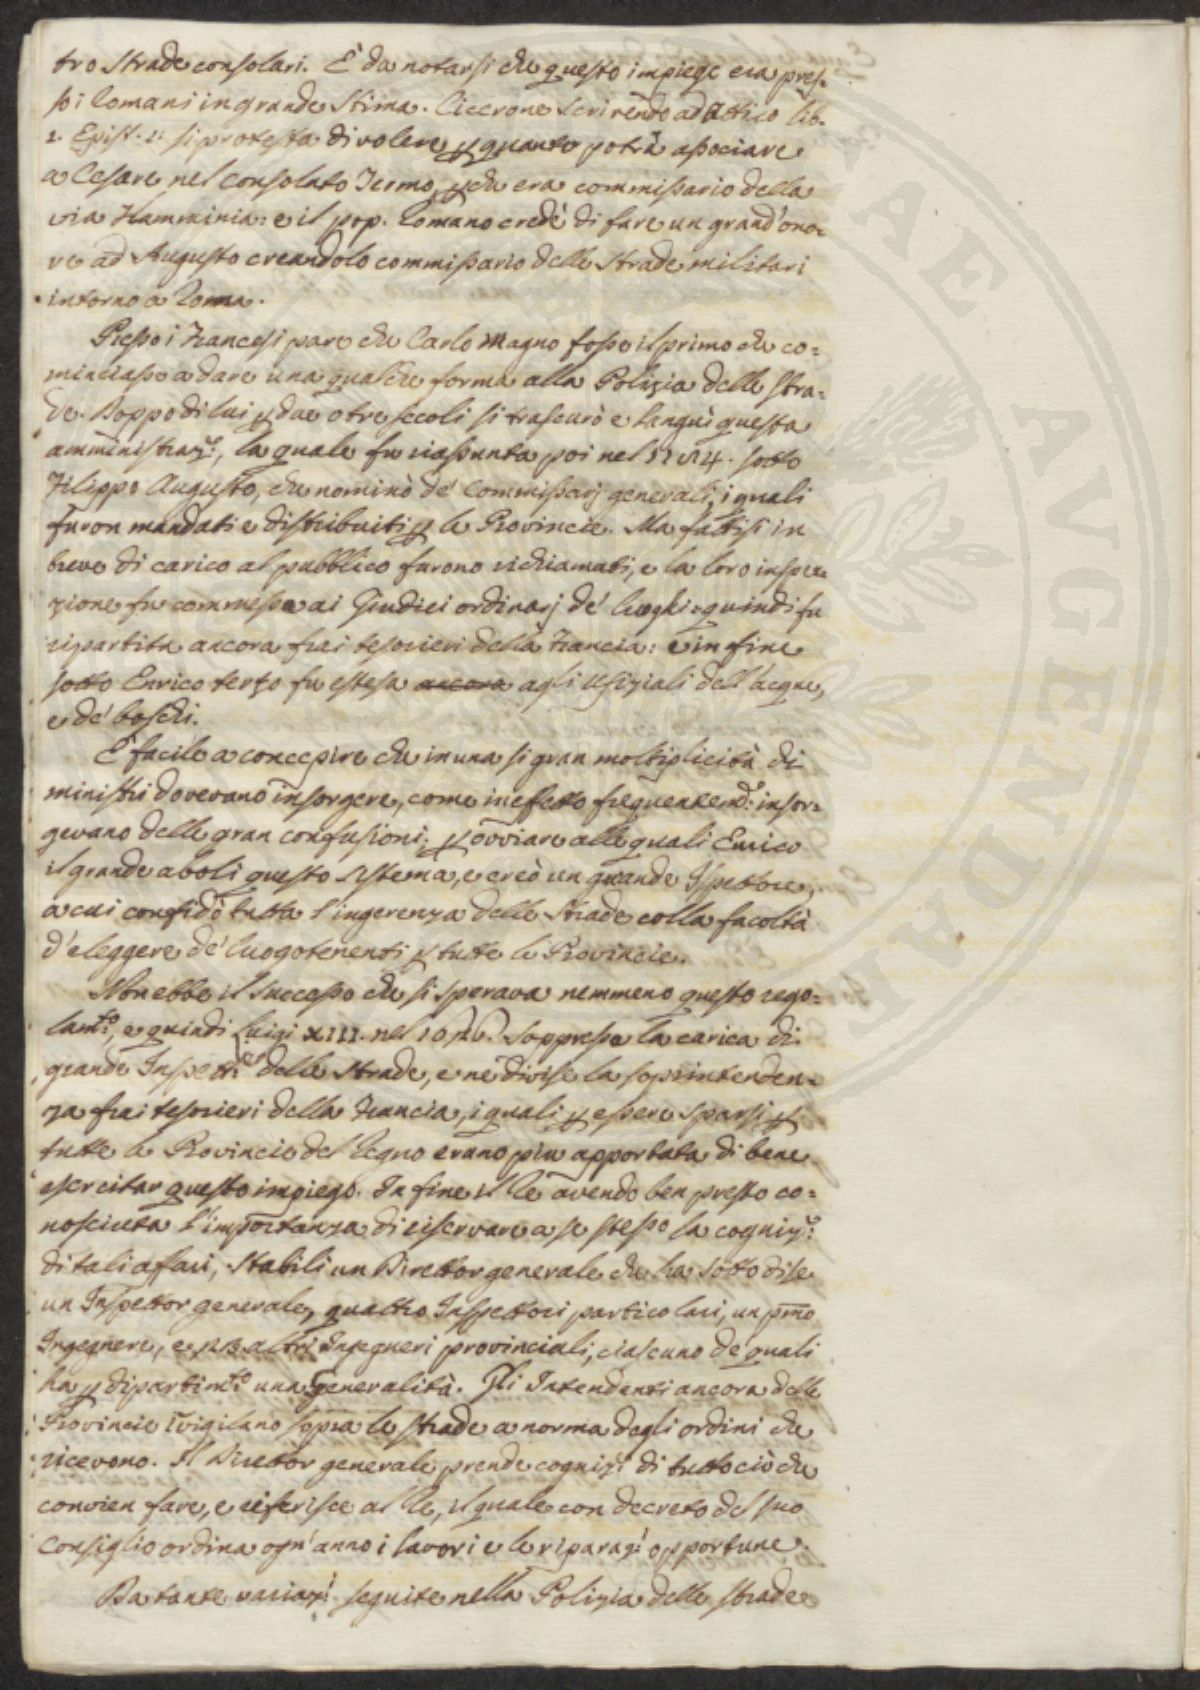 tro strade consolari. È da notarsi che questo impiego era pres-
so i Romani in grande stima. Cicerone scrivendo ad Attico lib.
1. Epist. 1: si protesta di volere p quanto potrà associare
a Cesare nel consolato Termo, pchè era commissario della
via Flamminia: e il pop. Romano credè di fare un grand'ono=
re ad Augusto creandolo commissario delle strade militari
intorno a Roma.
Presso i Francesi pare che Carlo Magno fosse il primo che co=
minciasse a dare una qualche forma alla Polizia delle stra=
de. Doppo di lui p due o tre secoli si trascurò e languì questa
amministraz.e, la quale fu riassunta poi nel sotto
Filippo Augusto, che nominò de' Commissarj generali, i quali
furon mandati e distribuiti p le Provincie. Ma fattisi in
breve di carico al pubblico furono richiamati, e la loro inspe=
zione fu commessa ai Giudici ordinarj de' luoghi: quindi fu
ripartita ancora frai tesorieri della Francia: e in fine
sotto Enrico terzo fu estesa ancora agli Ufiziali dell'acque,
e de' boschi.
È facile a concepire che in una si gran moltiplicità di
ministri dovevano insorgere, come in effetto frequentem.e insor=
gevano delle gran confusioni; p ovviare alle quali Enrico
il grande abolì questo sistema, e creò un grande Ispettore,
a cui confidò tutta l'ingerenza delle strade colla facoltà
d'eleggere de' luogotenenti p tutte le Provincie.
Non ebbe il successo che si sperava nemmeno questo rego=
lam.to, e quindi Luigi XIII. nel 1626. soppresse la carica di
grande Inspett.re delle strade, e ne divise la soprintenden=
za frai tesorieri della Francia, i quali p essere sparsi p
tutte le Provincie del Regno erano piu apportata di bene
esercitar questo impiego. In fine il Re avendo ben presto co=
nosciuta l'importanza di riservare a se stesso la cogniz.e
di tali affari, stabilì un Direttor generale che ha sotto di se
un Inspettor generale, quattro Inspettori particolari, un pmo
Ingegnere, e 23 altri Ingegneri provinciali, ciascuno de' quali
ha p dipartim.to una Generalità. Gli Intendenti ancora delle
Provincie invigilano sopra le strade a norma degli ordini che
ricevono. Il Direttor generale prende cogniz.e di tutto ciò che
convien fare, e riferisce al Re, il quale con decreto del suo
Consiglio ordina ogn'anno i lavori e le riparaz.i opportune.
Da tante variaz.i seguite nella Polizia delle strade